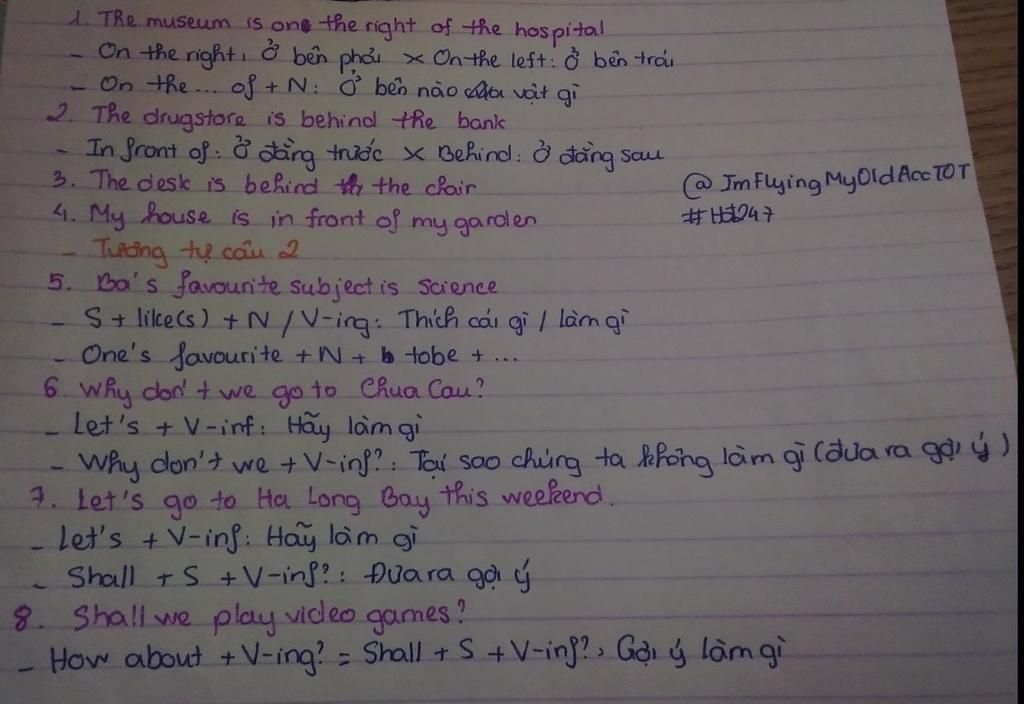 1. The museum is one the right of the hospital
- On the right: Ở bên phải × On the left: Ở bên trái
- On the... of + N: Ở bên nào của vật gì
2. The drugstore is behind the bank
- In front of: Ở đằng trước × Behind: Ở đằng sau
3. The desk is behind the chair
@ImFlyingMyOldAccTOT
4. My house is in front of my garden
#Hst247
- Tương tự câu 2
5. Ba's favourite subject is Science
- S + like(s) + N / V-ing: Thích cái gì / làm gì
- One's favourite + N + tobe + ...
6. Why don't we go to Chua Cau?
- Let's + V-inf: Hãy làm gì
- Why don't we + V-inf?: Tại sao chúng ta không làm gì (đưa ra gợi ý)
7. Let's go to Ha Long Bay this weekend.
- Let's + V-inf: Hãy làm gì
- Shall + S + V-inf?: Đưa ra gợi ý
8. Shall we play video games?
- How about + V-ing? = Shall + S + V-inf?: Gợi ý làm gì